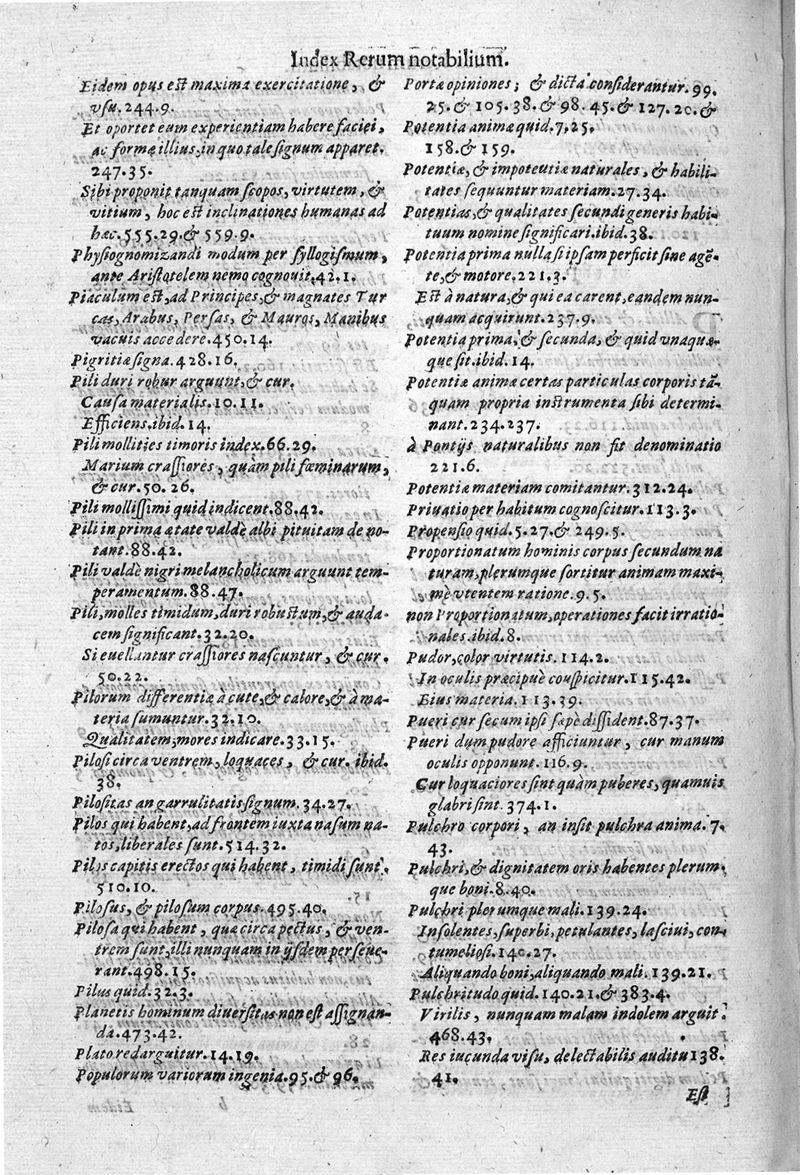 Index Rerum notabilium.
Eidem opus est maxima exercitatione, &
vsu. 244.9.
Et oportet eum experientiam habere faciei,
ac formæ illius, in quo tale signum apparet.
247.35.
Sibi proponit tanquam scopos, virtutem, &
vitium, hoc est inclinationes humanas ad
hæc. 555.29. & 559.9.
Physiognomizandi modum per syllogismum,
ante Aristotelem nemo cognouit, 42.1.
Piaculum est, ad Principes, & magnates Tur
cas, Arabus, Persas, & Mauros, Manibus
vacuis accedere. 450.14.
Pigritiæ signa. 428.16.
Pili duri robur arguunt, & cur.
Causa materialis. 10.11.
Efficiens. ibid. 14.
Pili mollities timoris index. 66.29.
Marium crassiores, quam pili fœminarum,
& cur. 50.26.
Pili mollissimi quid indicent. 88.42.
Pili in prima ætate valdè albi pituitam de no-
tant. 88.42.
Pili valdè nigri melancholicum arguunt tem-
peramentum. 88.47.
Pili, molles timidum, duri robustum, & auda-
cem significant. 32.20.
Si euellantur crassiores nascuntur, & cur.
50.22.
Pilorum differentiæ à cute, & calore, & à ma-
teria sumuntur. 32.10.
Qualitatem, mores indicare. 33.15.
Pilosi circa ventrem, loquaces, & cur. ibid.
38.
Pilositas an garrulitatis signum. 34.27.
Pilos qui habent, ad frontem iuxta nasum na-
tos, liberales sunt. 514.32.
Pilos capitis erectos qui habent, timidi sunt.
510.10.
Pilosus, & pilosum corpus. 495.40.
Pilosa qui habent, quæ circa pectus, & ven-
trem sunt, illi nunquam in ijsdem perseue-
rant. 498.15.
Pilus quid. 32.3.
Planetis hominum diuersitas non est assignan-
da. 473.42.
Plato redarguitur. 14.19.
Populorum variorum ingenia. 95. & 96.
Portæ opiniones; & dicta considerantur. 99.
25. & 105.38. & 98.45. & 127.20. &
Potentia animæ quid. 7.25.
158. & 159.
Potentiæ, & impotentiæ naturales, & habili-
tates sequuntur materiam. 27.34.
Potentias, & qualitates secundi generis habi-
tuum nomine significari. ibid. 38.
Potentia prima nulla si ipsam perficit sine agẽ-
te, & motore. 221.3.
Est à natura, & qui ea carent, eandem nun-
quam acquirunt. 237.9.
Potentia prima, & secunda, & quid vnaquæ-
que sit. ibid. 14.
Potentiæ animæ certas particulas corporis tã-
quam propria instrumenta sibi determi-
nant. 234.237.
à Pontijs naturalibus non fit denominatio
221.6.
Potentiæ materiam comitantur. 312.24.
Priuatio per habitum cognoscitur. 113.3.
Propensio quid. 5.27. & 249.5.
Proportionatum hominis corpus secundum na
turam, plerumque sortitur animam maxi-
mè vtentem ratione. 9.5.
non Proportionatum, operationes facit irratio-
nales. ibid. 8.
Pudor, color virtutis. 114.2.
In oculis præcipuè conspicitur. 115.42.
Eius materia. 113.39.
Pueri cur secum ipsi sæpè dissident. 87.37.
Pueri dum pudore afficiuntur, cur manum
oculis opponunt. 116.9.
Cur loquaciores sint quàm puberes, quamuis
glabri sint. 374.1.
Pulchro corpori, an insit pulchra anima. 7.
43.
Pulchri, & dignitatem oris habentes plerum-
que boni. 8.40.
Pulchri plerumque mali. 139.24.
Insolentes, superbi, petulantes, lasciui, con-
tumeliosi. 140.27.
Aliquando boni, aliquando mali. 139.21.
Pulchritudo quid. 140.21. & 383.4.
Virilis, nunquam malam indolem arguit.
468.43.
Res iucunda visu, delectabilis auditu 138.
41.
Est